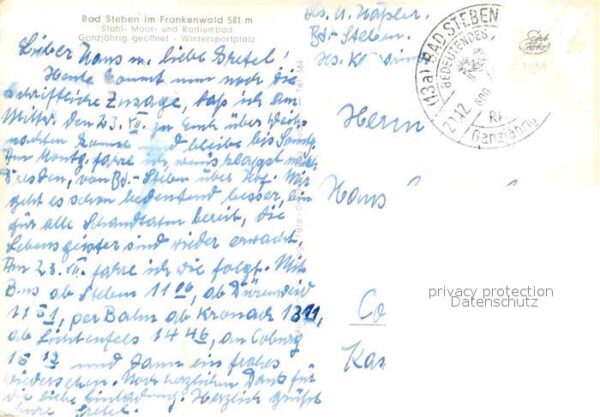 Bad Steben im Frankenwald 581 m
Stahl- Moor- und Radiumbad
Ganzjährig geöffnet - Wintersportplatz
Lieber Hans u. liebe Gretel!
Heute kommt nur noch die
schriftliche Zusage, daß ich am
Mittw. den 23. XII. zu Euch über Weih-
nachten komme und bleibe bis Sonnt.
Am Montg. fahre ich, wenn's klappt nach
Dresden, von Bd.-Steben über Hof. Mir
geht es schon bedeutend besser, bin
für alle Schandtaten bereit, die
Lebensgeister sind wieder erwacht.
Am 23. XII. fahre ich wie folgt. Mit
Bus ab Steben 11 06, ab Dürrenwaid
11 51, per Bahn ab Kronach 13 11,
ab Lichtenfels 14 46, an Coburg
15 13 und dann ein frohes
Wiedersehen. Noch herzlichen Dank für
die liebe Einladung. Herzlich grüßt
Eure Gretel.
Bd.-Steben.
(13a) BAD STEBEN
BEDEUTENDES
21.12.
Ganzjährig
Herrn
Hans
privacy protection
Datenschutz
Co
Kas